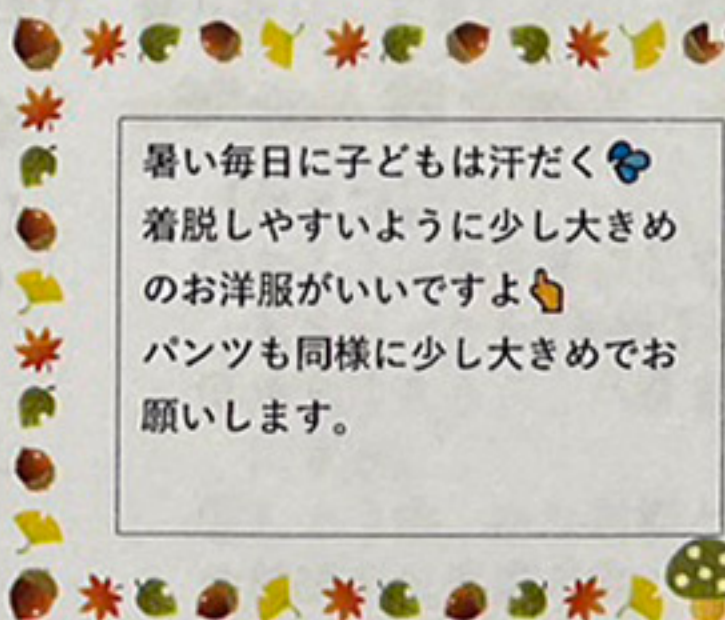 暑い毎日に子どもは汗だく💦
着脱しやすいように少し大きめ
のお洋服がいいですよ👆
パンツも同様に少し大きめでお
願いします。